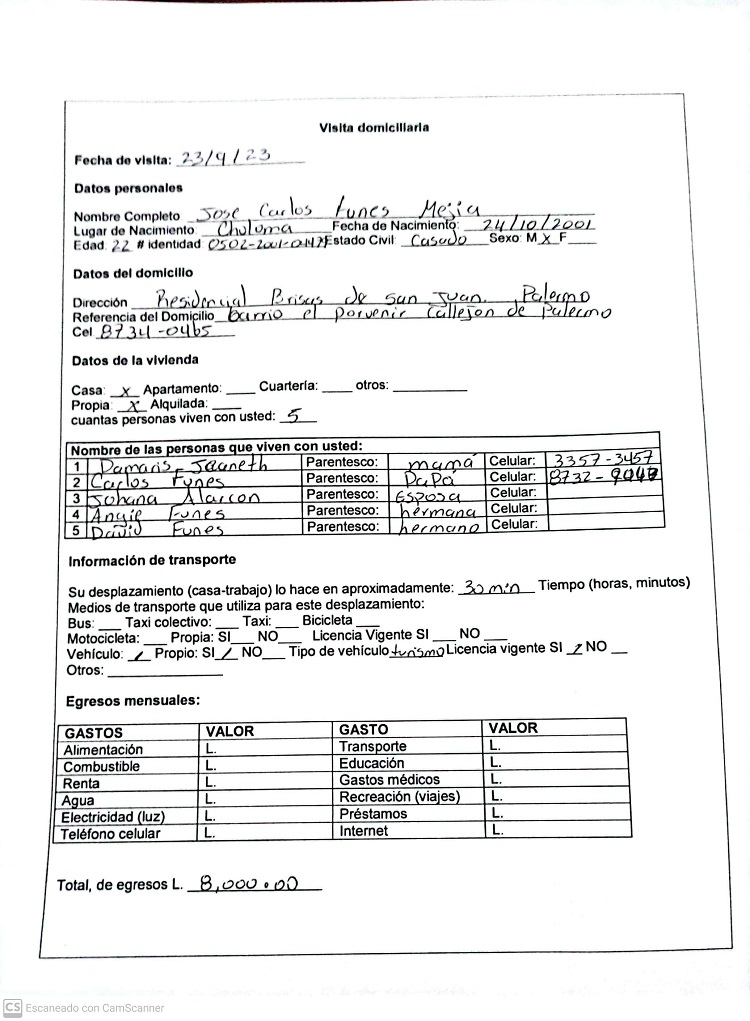 Visita domiciliaria
Fecha de visita: 23/9/23
Datos personales
Nombre Completo Jose Carlos Funes Mejia
Lugar de Nacimiento Choloma Fecha de Nacimiento: 24/10/2001
Edad 22 # identidad Estado Civil: Casado Sexo: M X F
Datos del domicilio
Dirección Residencial Brisas de San Juan. Palermo
Referencia del Domicilio barrio el porvenir Callejon de Palermo
Cel 8734-0465
Datos de la vivienda
Casa: X Apartamento: ____ Cuartería: ____ otros: ____
Propia: X Alquilada: ____
cuantas personas viven con usted: 5
Nombre de las personas que viven con usted:
1 Damaris Jeaneth Parentesco: mamá Celular: 3357-3457
2 Carlos Funes Parentesco: PaPá Celular: 8732-
3 Johana Alarcon Parentesco: Esposa Celular:
4 Angie Funes Parentesco: hermana Celular:
5 David Funes Parentesco: hermano Celular:
Información de transporte
Su desplazamiento (casa-trabajo) lo hace en aproximadamente: 30 min Tiempo (horas, minutos)
Medios de transporte que utiliza para este desplazamiento:
Bus: ___ Taxi colectivo: ___ Taxi: ___ Bicicleta ___
Motocicleta: ___ Propia: SI___ NO___ Licencia Vigente SI ___ NO ___
Vehículo: ✓ Propio: SI ✓ NO___ Tipo de vehículo turismo Licencia vigente SI ✓ NO __
Otros: ____
Egresos mensuales:
GASTOS VALOR GASTO VALOR
Alimentación L. Transporte L.
Combustible L. Educación L.
Renta L. Gastos médicos L.
Agua L. Recreación (viajes) L.
Electricidad (luz) L. Préstamos L.
Teléfono celular L. Internet L.
Total, de egresos L. 8,000.00
CS Escaneado con CamScanner